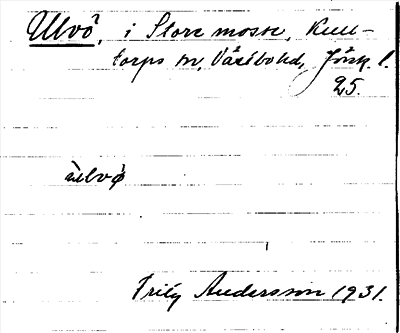 Ulvö, i Store mosse, Kull-
torps sn, Västbo hd, Jönk. l.
25.
ùlvø
Frily Andersson 1931.